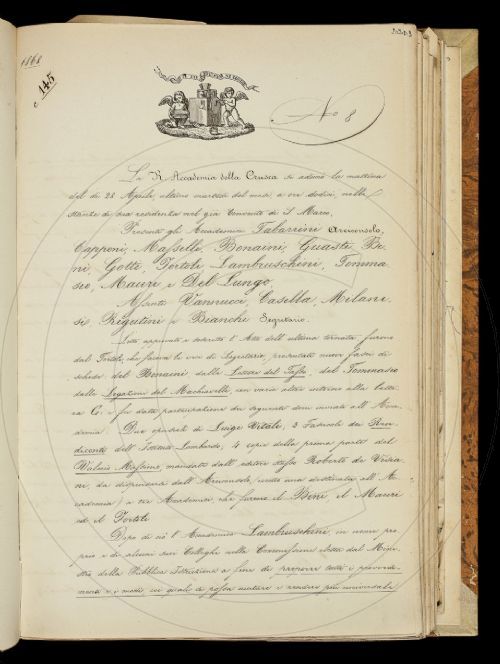 1868
c. 145
No 8
La R. Accademia della Crusca si adunò la mattina
del dì 28 Aprile ultimo martedì del mese a ore dodici, nelle
stanze di sua residenza nel già Convento di S. Marco,
Presenti gli Accademici Tabarrini Arciconsolo,
Capponi, Masselli, Bonaini, Guasti, Bi
ni, Gotti, Tortoli, Lambruschini, Tomma
seo, Mauri e Del Lungo,
Assenti Vannucci, Casella, Milane
si, Rigutini e Bianchi Segretario.
Letto approvato e sottoscritto l'Atto dell'ultima tornata furono
dal Tortoli, che faceva le veci di Segretario, presentati nuovi fasci di
schede del Bonaini dalle Lettere del Tasso, del Tommaseo
dalle Legazioni del Machiavelli, con varie altre intorno alla lette
ra C; e fu data partecipazione dei seguenti doni inviati all'Acca
demia: Due opuscoli di Luigi Vitali, 3 Fascicoli dei Ren
diconti dell'Istituto Lombardo; 4 copie della prima parte del
Valerio Massimo, mandate dall'editore stesso Roberto de Visia
ni, da dispensarsi dall'Arciconsolo (meno una destinata all'Ac
cademia) a tre Accademici, che furono il Bini, il Mauri
ed il Tortoli.
Dopo di ciò l'Accademico Lambruschini, in nome pro
prio e di alcuni suoi Colleghi nella Commissione eletta dal Mini
stro della Pubblica Istruzione a fine di proporre tutti i provvedi
menti e i modi, coi quali si possa aiutare e rendere più universale